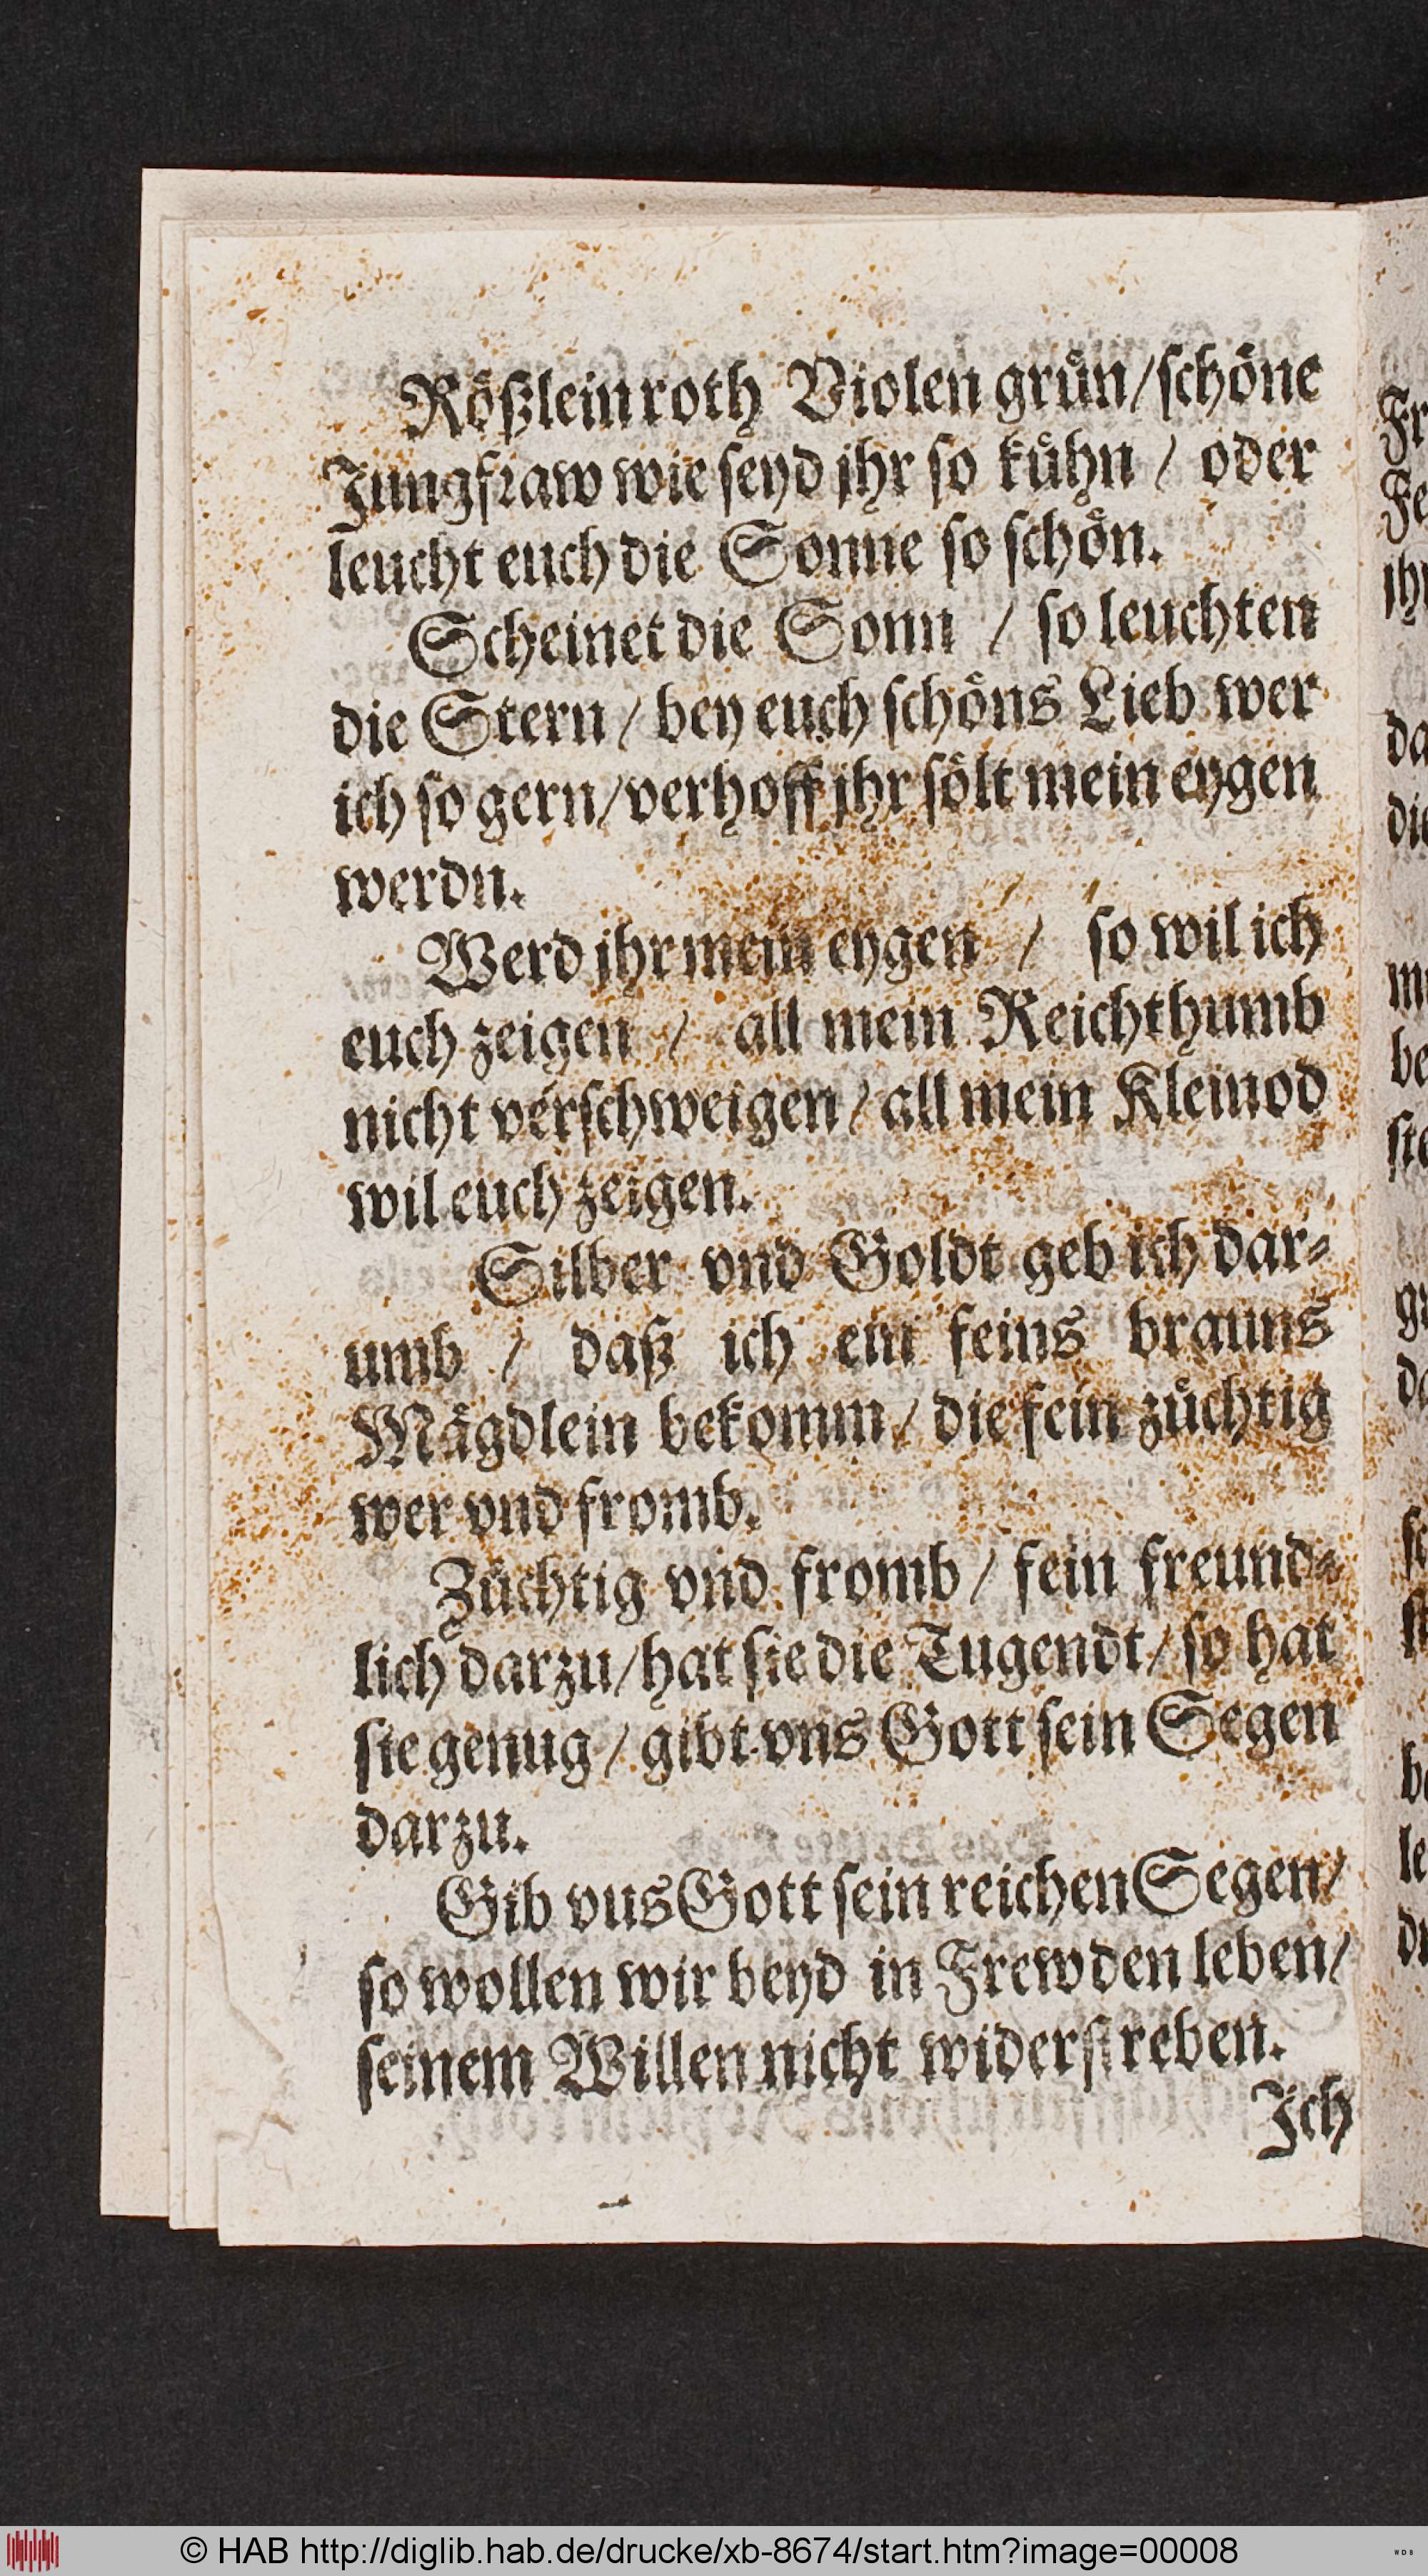 Roͤßlein roth Violen gruͤn / ſchoͤne
Jungfraw wie ſeyd jhr ſo kuͤhn / oder
leucht euch die Sonne ſo ſchoͤn.
Scheinet die Sonn / ſo leuchten
die Stern / bey euch ſchoͤns Lieb wer
ich ſo gern / verhoff jhr ſoͤlt mein eygen
werdn.
Werd jhr mein eygen / ſo wil ich
euch zeigen / all mein Reichthumb
nicht verſchweigen / all mein Kleinod
wil euch zeigen.
Silber vnd Goldt geb ich dar⸗
umb / daß ich ein feins brauns
Maͤgdlein bekomm / die fein zuͤchtig
wer vnd fromb.
Zuͤchtig vnd fromb / fein freund⸗
lich darzu / hat ſie die Tugendt / ſo hat
ſie genug / gibt vns Gott ſein Segen
darzu.
Gib vns Gott ſein reichen Segen /
ſo wollen wir beyd in Frewden leben /
ſeinem Willen nicht widerſtreben.
Jch
© HAB http://diglib.hab.de/drucke/xb-8674/start.htm?image=00008
WDB